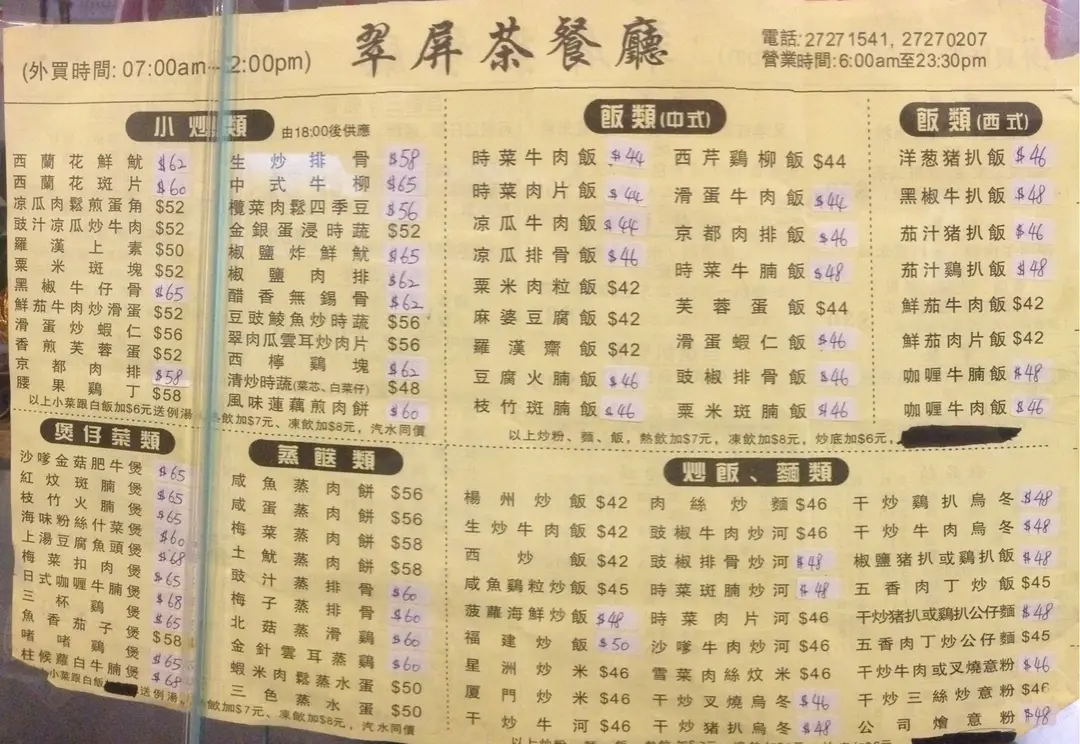 翠屏茶餐廳
(外買時間: 07:00am- 2:00pm)
電話: 27271541, 27270207
營業時間: 6:00am至23:30pm
小炒類 由18:00後供應
西蘭花鮮魷 $62
西蘭花斑片 $60
凉瓜肉鬆煎蛋角 $52
豉汁凉瓜炒牛肉 $52
羅漢上素 $50
粟米斑塊 $52
黑椒牛仔骨 $65
鮮茄牛肉炒滑蛋 $52
滑蛋炒蝦仁 $56
香煎芙蓉蛋 $52
京都肉排 $58
腰果鷄丁 $58
生炒排骨 $58
中式牛柳 $65
欖菜肉鬆四季豆 $56
金銀蛋浸時蔬 $52
椒鹽炸鮮魷 $65
椒鹽肉排 $62
醋香無錫骨 $62
豆豉鯪魚炒時蔬 $56
翠肉瓜雲耳炒肉片 $56
西檸鷄塊 $62
清炒時蔬(菜芯、白菜仔) $48
風味蓮藕煎肉餅 $60
以上小菜跟白飯加$6元送例湯
熱飲加$7元、凍飲加$8元，汽水同價
飯類(中式)
時菜牛肉飯 $44
時菜肉片飯 $44
凉瓜牛肉飯 $44
凉瓜排骨飯 $46
粟米肉粒飯 $42
麻婆豆腐飯 $42
羅漢齋飯 $42
豆腐火腩飯 $46
枝竹斑腩飯 $46
西芹鷄柳飯 $44
滑蛋牛肉飯 $44
京都肉排飯 $46
時菜牛腩飯 $48
芙蓉蛋飯 $44
滑蛋蝦仁飯 $46
豉椒排骨飯 $46
粟米斑腩飯 $46
飯類(西式)
洋葱猪扒飯 $46
黑椒牛扒飯 $48
茄汁猪扒飯 $46
茄汁鷄扒飯 $48
鮮茄牛肉飯 $42
鮮茄肉片飯 $42
咖喱牛腩飯 $48
咖喱牛肉飯 $46
以上炒粉、麵、飯，熱飲加$7元，凍飲加$8元，炒底加$6元，
煲仔菜類
沙嗲金菇肥牛煲 $65
紅炆斑腩煲 $65
枝竹火腩煲 $65
海味粉絲什菜煲 $60
上湯豆腐魚頭煲 $68
梅菜扣肉煲 $65
日式咖喱牛腩煲 $68
三杯鷄煲 $65
魚香茄子煲 $58
啫啫鷄煲 $65
柱候蘿白牛腩煲 $68
小菜跟白飯 送例湯
蒸餸類
咸魚蒸肉餅 $56
咸蛋蒸肉餅 $56
梅菜蒸肉餅 $58
土魷蒸肉餅 $58
豉汁蒸排骨 $60
梅子蒸排骨 $60
北菇蒸滑鷄 $60
金針雲耳蒸鷄 $60
蝦米肉鬆蒸水蛋 $50
三色蒸水蛋 $50
飲加$7元、凍飲加$8元，汽水同價
炒飯、麵類
楊州炒飯 $42
生炒牛肉飯 $42
西炒飯 $42
咸魚鷄粒炒飯 $45
菠蘿海鮮炒飯 $48
福建炒飯 $50
星洲炒米 $46
厦門炒米 $46
干炒牛河 $46
肉絲炒麵 $46
豉椒牛肉炒河 $46
豉椒排骨炒河 $48
時菜斑腩炒河 $48
時菜肉片河 $46
沙嗲牛肉炒河 $46
雪菜肉絲炆米 $46
干炒叉燒烏冬 $46
干炒猪扒烏冬 $48
干炒鷄扒烏冬 $48
干炒牛肉烏冬 $48
椒鹽猪扒或鷄扒飯 $48
五香肉丁炒飯 $45
干炒猪扒或鷄扒公仔麵 $48
五香肉丁炒公仔麵 $45
干炒牛肉或叉燒意粉 $46
干炒三絲炒意粉 $46
公司燴意粉 $48